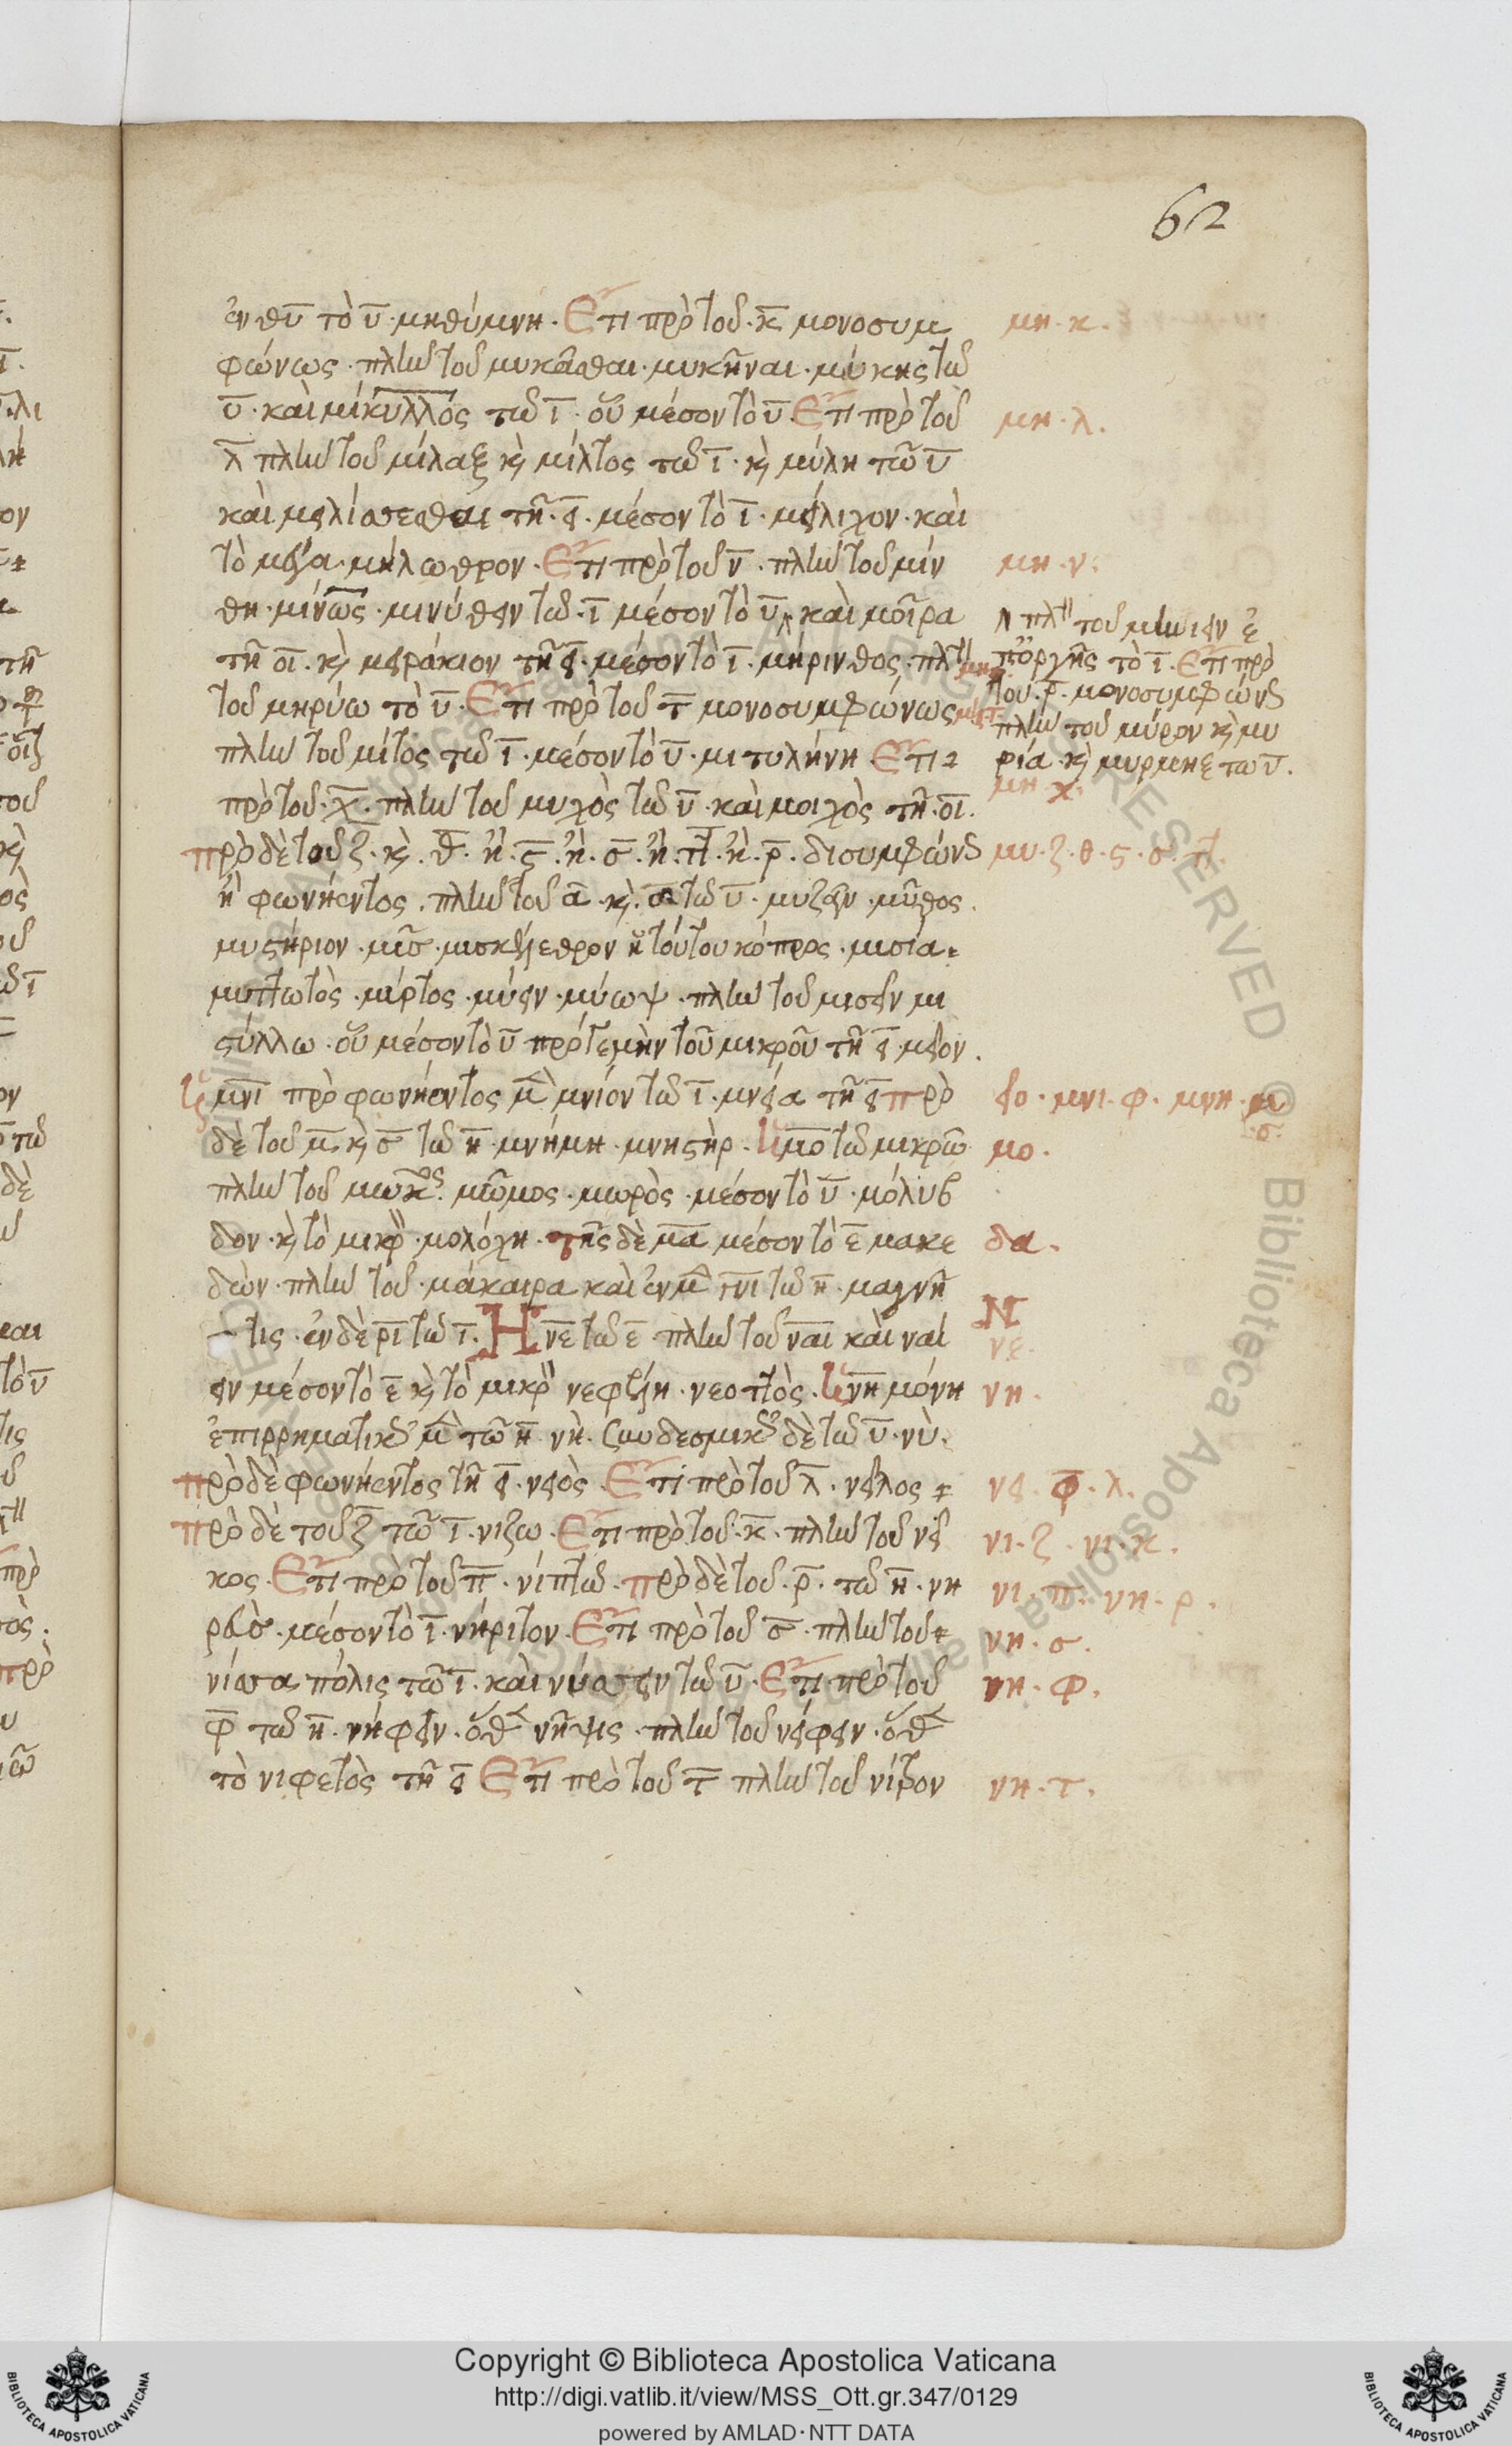 62
ἐν θυ τὸ υ· μηθύμνη· Ἔτι πρὸ τοῦ· κ μονοσυμ
φώνως· πλὴν τοῦ μυκᾶσθαι· μυκῆναι· μύκης τῶ
υ· καὶ μίκυλλος τῶ ι· οὗ μέσον τὸ υ· Ἔτι πρὸ τοῦ
λ πλὴν τοῦ μίλαξ κὶ μίλτος τῶ ι· κὶ μύλη τῶ υ
καὶ μειλίσσεσθαι τῆ· ει· μέσον τὸ ι· μείλιχον· καὶ
τὸ μήλωθρον· Ἔτι πρὸ τοῦ ν· πλὴν τοῦ μίν
θη· μίνως· μινύθειν τῶ· ι μέσον τὸ υ καὶ μοῖρα
τῆ οι· κὶ μειράκιον τῆ ει· μέσον τὸ ι· μήρινθος· πλὴν
τοῦ μηρύω τὸ υ· Ἔτι πρὸ τοῦ τ μονοσυμφώνως
πλὴν τοῦ μίτος τῶ ι· μέσον τὸ υ· μιτυλήνη Ἔτι
πρὸ τοῦ· χ· πλὴν τοῦ μυχὸς τῶ υ· καὶ μοιχὸς τῆ· οι·
πρὸ δὲ τοῦ ζ· κὶ· θ· ἢ· ϛ· ἢ· σ· ἢ· πτ· ἢ· ρ· δισυμφώνου
ἢ φωνήεντος· πλὴν τοῦ α· κὶ· τῶ υ· μυζεῖν· μῦθος·
μυστήριον· μισκέλεθρον ἢ τούτου κόπρος· μυσία
μυττωτὸς· μύρτος· μύειν· μύωψ· πλὴν τοῦ μισεῖν μι
στύλλω· οὗ μέσον τὸ υ πρότε μὴν τοῦ μικροῦ τῆ ει μεῖον·
μνι πρὸ φωνήεντος μνίον τῶ ι· μνεία τῆ ει πρὸ
δὲ τοῦ μ κὶ σ τῶ η· μνήμη· μνηστήρ· μο τῶ μικρῶ
πλὴν τοῦ μῶμος· μωρὸς· μέσον τὸ υ· μόλυβ
δον· κὶ τὸ μικρὸν· μολόχη· τῆς δὲ μα μέσον τὸ ε μακε
δών· πλὴν τοῦ· μάκαιρα καὶ ἐν γνι τῶ η· μαγνῆ
τις· ἐν δὲ ρι τῶ ι· Η νε τῶ ε πλὴν τοῦ ναι καὶ ναί
ειν μέσον τὸ ε κὶ τὸ μικρὸν νεφέλη· νεοττὸς· νη μόνη
ἐπιρρηματικῶς τῶ η νὴ· συνδεσμικῶς δὲ τῶ υ· νὺ·
πρὸ δὲ φωνήεντος τῆ ει· νειὸς· Ἔτι πρὸ τοῦ λ· νεῖλος
πρὸ δὲ τοῦ ζ τῶ ι· νίζω· Ἔτι πρὸ τοῦ· κ· πλὴν τοῦ νεῖ
κος· Ἔτι πρὸ τοῦ π· νίπτω· πρὸ δὲ τοῦ· ρ· τῶ η· νη
ρεὺς· μέσον τὸ ι· νήριτον· Ἔτι πρὸ τοῦ σ· πλὴν τοῦ
νίσσα πόλις τῶ ι· καὶ νύσσειν τῶ υ· Ἔτι πρὸ τοῦ
φ τῶ η· νήφειν· ὅθεν νῆψις· πλὴν τοῦ νείφειν· ὅθεν
τὸ νιφετὸς τῆ ει Ἔτι πρὸ τοῦ τ πλὴν τοῦ νίτρον
μη· κ·
μη· λ·
μη· ν·
πλὴν τοῦ μηνίειν
τὸ ι· Ἔτι πρὸ
τοῦ· ρ· μονοσυμφώνου
πλὴν τοῦ μύρον κὶ μυ
ρία κὶ μύρμηξ τῶ υ·
μη· χ·
μυ· ζ· θ· ϛ· σ· πτ·
μνι· φ· μνη· μ
σ·
μο·
δα·
Ν
νε·
νη·
νει· φ· λ·
νι· ζ· νι· κ·
νι· π· νη· ρ·
νη· σ·
νη· φ·
νη· τ·
Copyright © Biblioteca Apostolica Vaticana
http://digi.vatlib.it/view/MSS_Ott.gr.347/0129
powered by AMLAD·NTT DATA
BIBLIOTECA APOSTOLICA VATICANA
BIBLIOTECA APOSTOLICA VATICANA